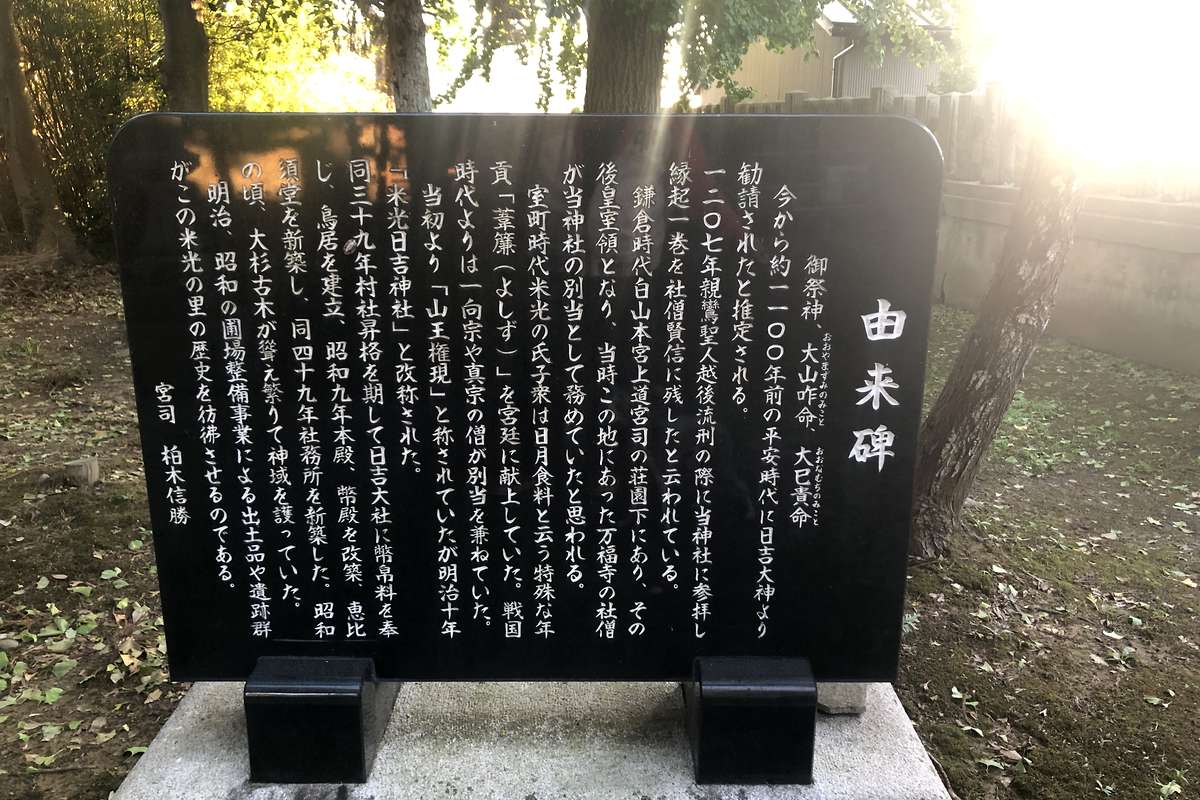 由来碑
御祭神、大山咋命　大巳貴命
おおやまずみのみこと　おおなむちのみこと
今から約一一〇〇年前の平安時代に日吉大神より
勧請されたと推定される。
一二〇七年親鸞聖人越後流刑の際に当神社に参拝し
縁起一巻を社僧賢信に残したと云われている。
鎌倉時代白山本宮上道宮司の荘園下にあり、その
後皇室領となり、当時この地にあった万福寺の社僧
が当神社の別当として務めていたと思われる。
室町時代米光の氏子衆は日月食料と云う特殊な年
貢「葦簾（よしず）」を宮廷に献上していた。戦国
時代よりは一向宗や真宗の僧が別当を兼ねていた。
当初より「山王権現」と称されていたが明治十年
「米光日吉神社」と改称された。
同三十九年村社昇格を期して日吉大社に幣帛料を奉
じ、鳥居を建立、昭和九年本殿、幣殿を改築、恵比
須堂を新築し、同四十九年社務所を新築した。昭和
の頃、大杉古木が聳え繁りて神域を護っていた。
明治、昭和の圃場整備事業による出土品や遺跡群
がこの米光の里の歴史を彷彿させるのである。
宮司　柏木信勝